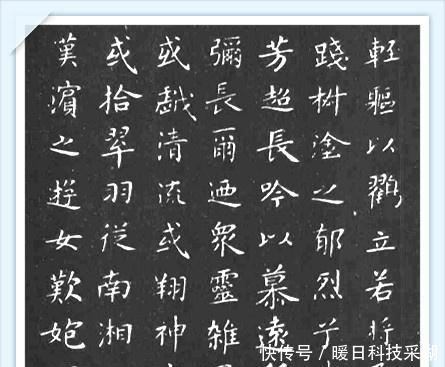 輕軀以鶴立若將
踐椒塗之郁烈步
芳超長吟以慕遠
彌長爾迺眾靈雜
或戲清流或翔神
或拾翠羽從南湘
漢濱之遊女歎匏
快传号 / 暖日科技采湖